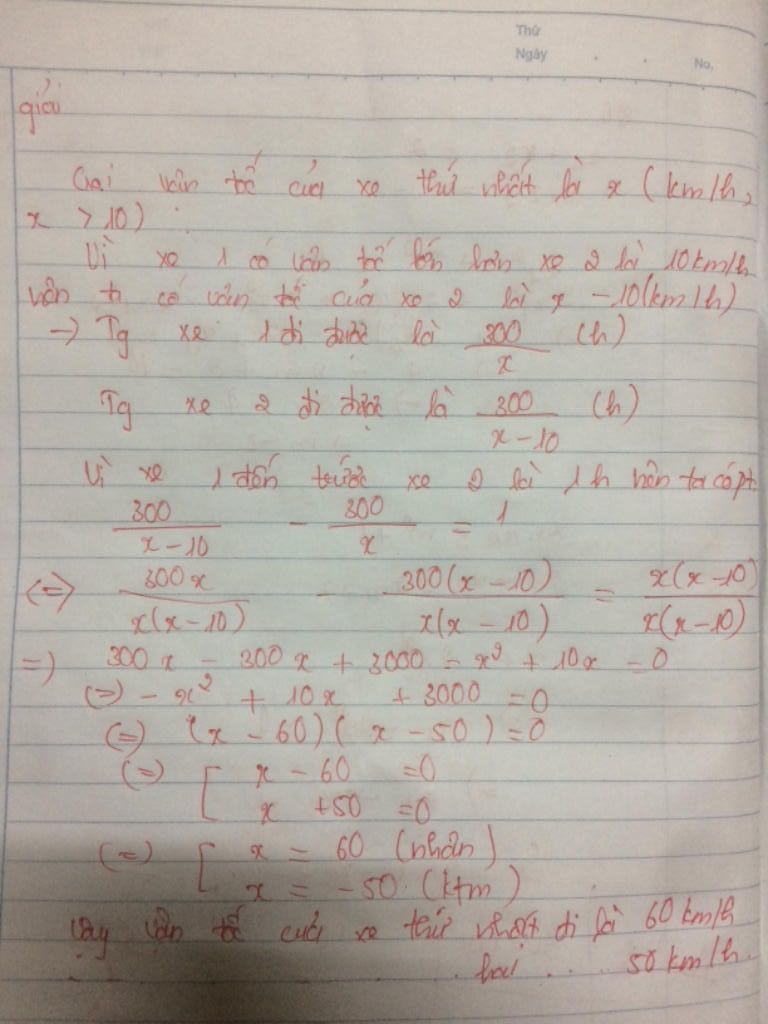 Thứ
Ngày . . No.
giải
Gọi vận tố của xe thứ nhất là x (km/h,
x > 10) :
Vì xe 1 có vận tố lớn hơn xe 2 là 10km/h
nên t có vận tố của xe 2 là x - 10(km/h)
-> Tg xe 1 đi được là 300/x (h)
Tg xe 2 đi được là 300/(x-10) (h)
Vì xe 1 đến trước xe 2 là 1h nên ta có pt
300/(x-10) - 300/x = 1
(=) 300x/(x(x-10)) - 300(x-10)/(x(x-10)) = x(x-10)/(x(x-10))
=) 300x - 300x + 3000 - x² + 10x = 0
(=) - x² + 10x + 3000 = 0
(=) (x - 60)( x - 50) = 0
(=) [ x - 60 = 0
x + 50 = 0
(=) [ x = 60 (nhận)
x = -50 (ktm)
Vậy vận tố của xe thứ nhất đi là 60 km/h
hai . . 50 km/h.